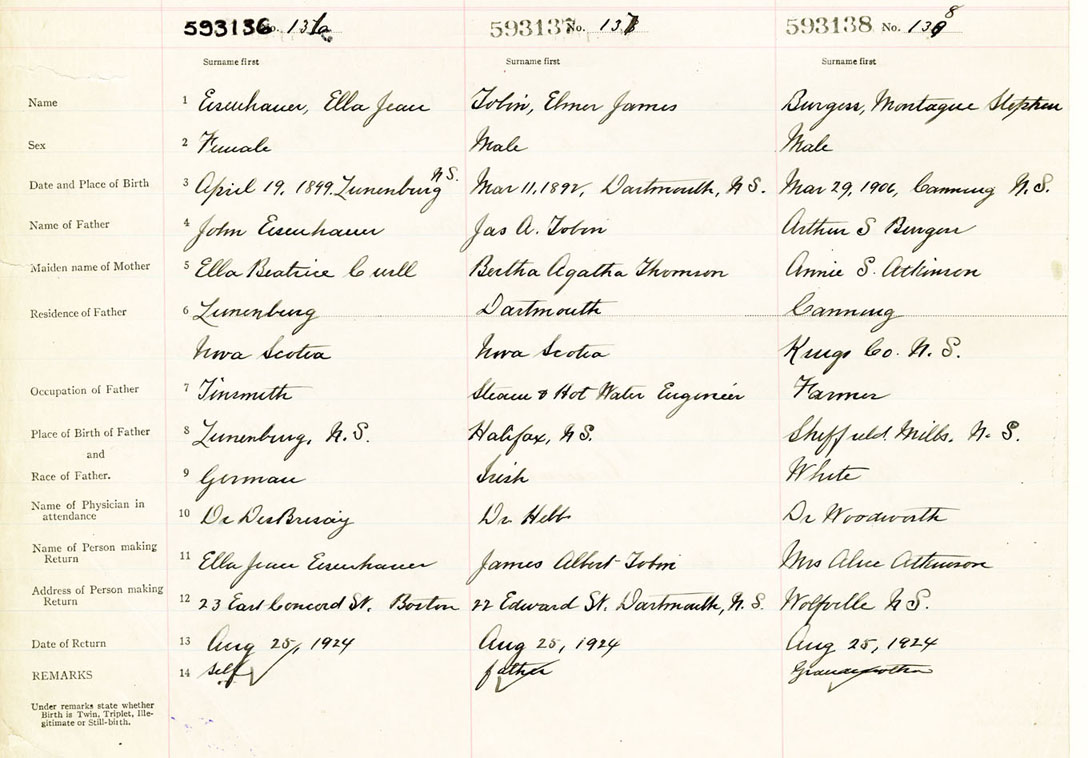 593136 No. 137a 593137 No. 137 593138 No. 138
Surname first Surname first Surname first
Name 1 Eisenhauer, Ella Jean Tobin, Elmer James Burgess, Montague Stephen
Sex 2 Female Male Male
Date and Place of Birth 3 April 19, 1899. Lunenburg N.S. Mar 11, 1892, Dartmouth, N.S. Mar 29, 1906, Canning N.S.
Name of Father 4 John Eisenhauer Jas A. Tobin Arthur S Burgess
Maiden name of Mother 5 Ella Beatrice Bertha Agatha Thomson Annie S. Atkinson
Residence of Father 6 Lunenburg Dartmouth Canning
Nova Scotia Nova Scotia Kings Co. N.S.
Occupation of Father 7 Tinsmith Steam & Hot Water Engineer Farmer
Place of Birth of Father 8 Lunenburg, N.S. Halifax, N.S. Sheffield Mills, N.S.
and
Race of Father. 9 German Irish White
Name of Physician in
attendance 10 Dr DesBrisay Dr Hebb Dr Woodworth
Name of Person making
Return 11 Ella Jean Eisenhauer James Albert Tobin Mrs Alice Atkinson
Address of Person making
Return 12 23 East Concord St. Boston 22 Edward St. Dartmouth, N.S. Wolfville N.S.
Date of Return 13 Aug 25, 1924 Aug 25, 1924 Aug 25, 1924
REMARKS 14 self father Grandmother
Under remarks state whether
Birth is Twin, Triplet, Ille-
gitimate or Still-birth.